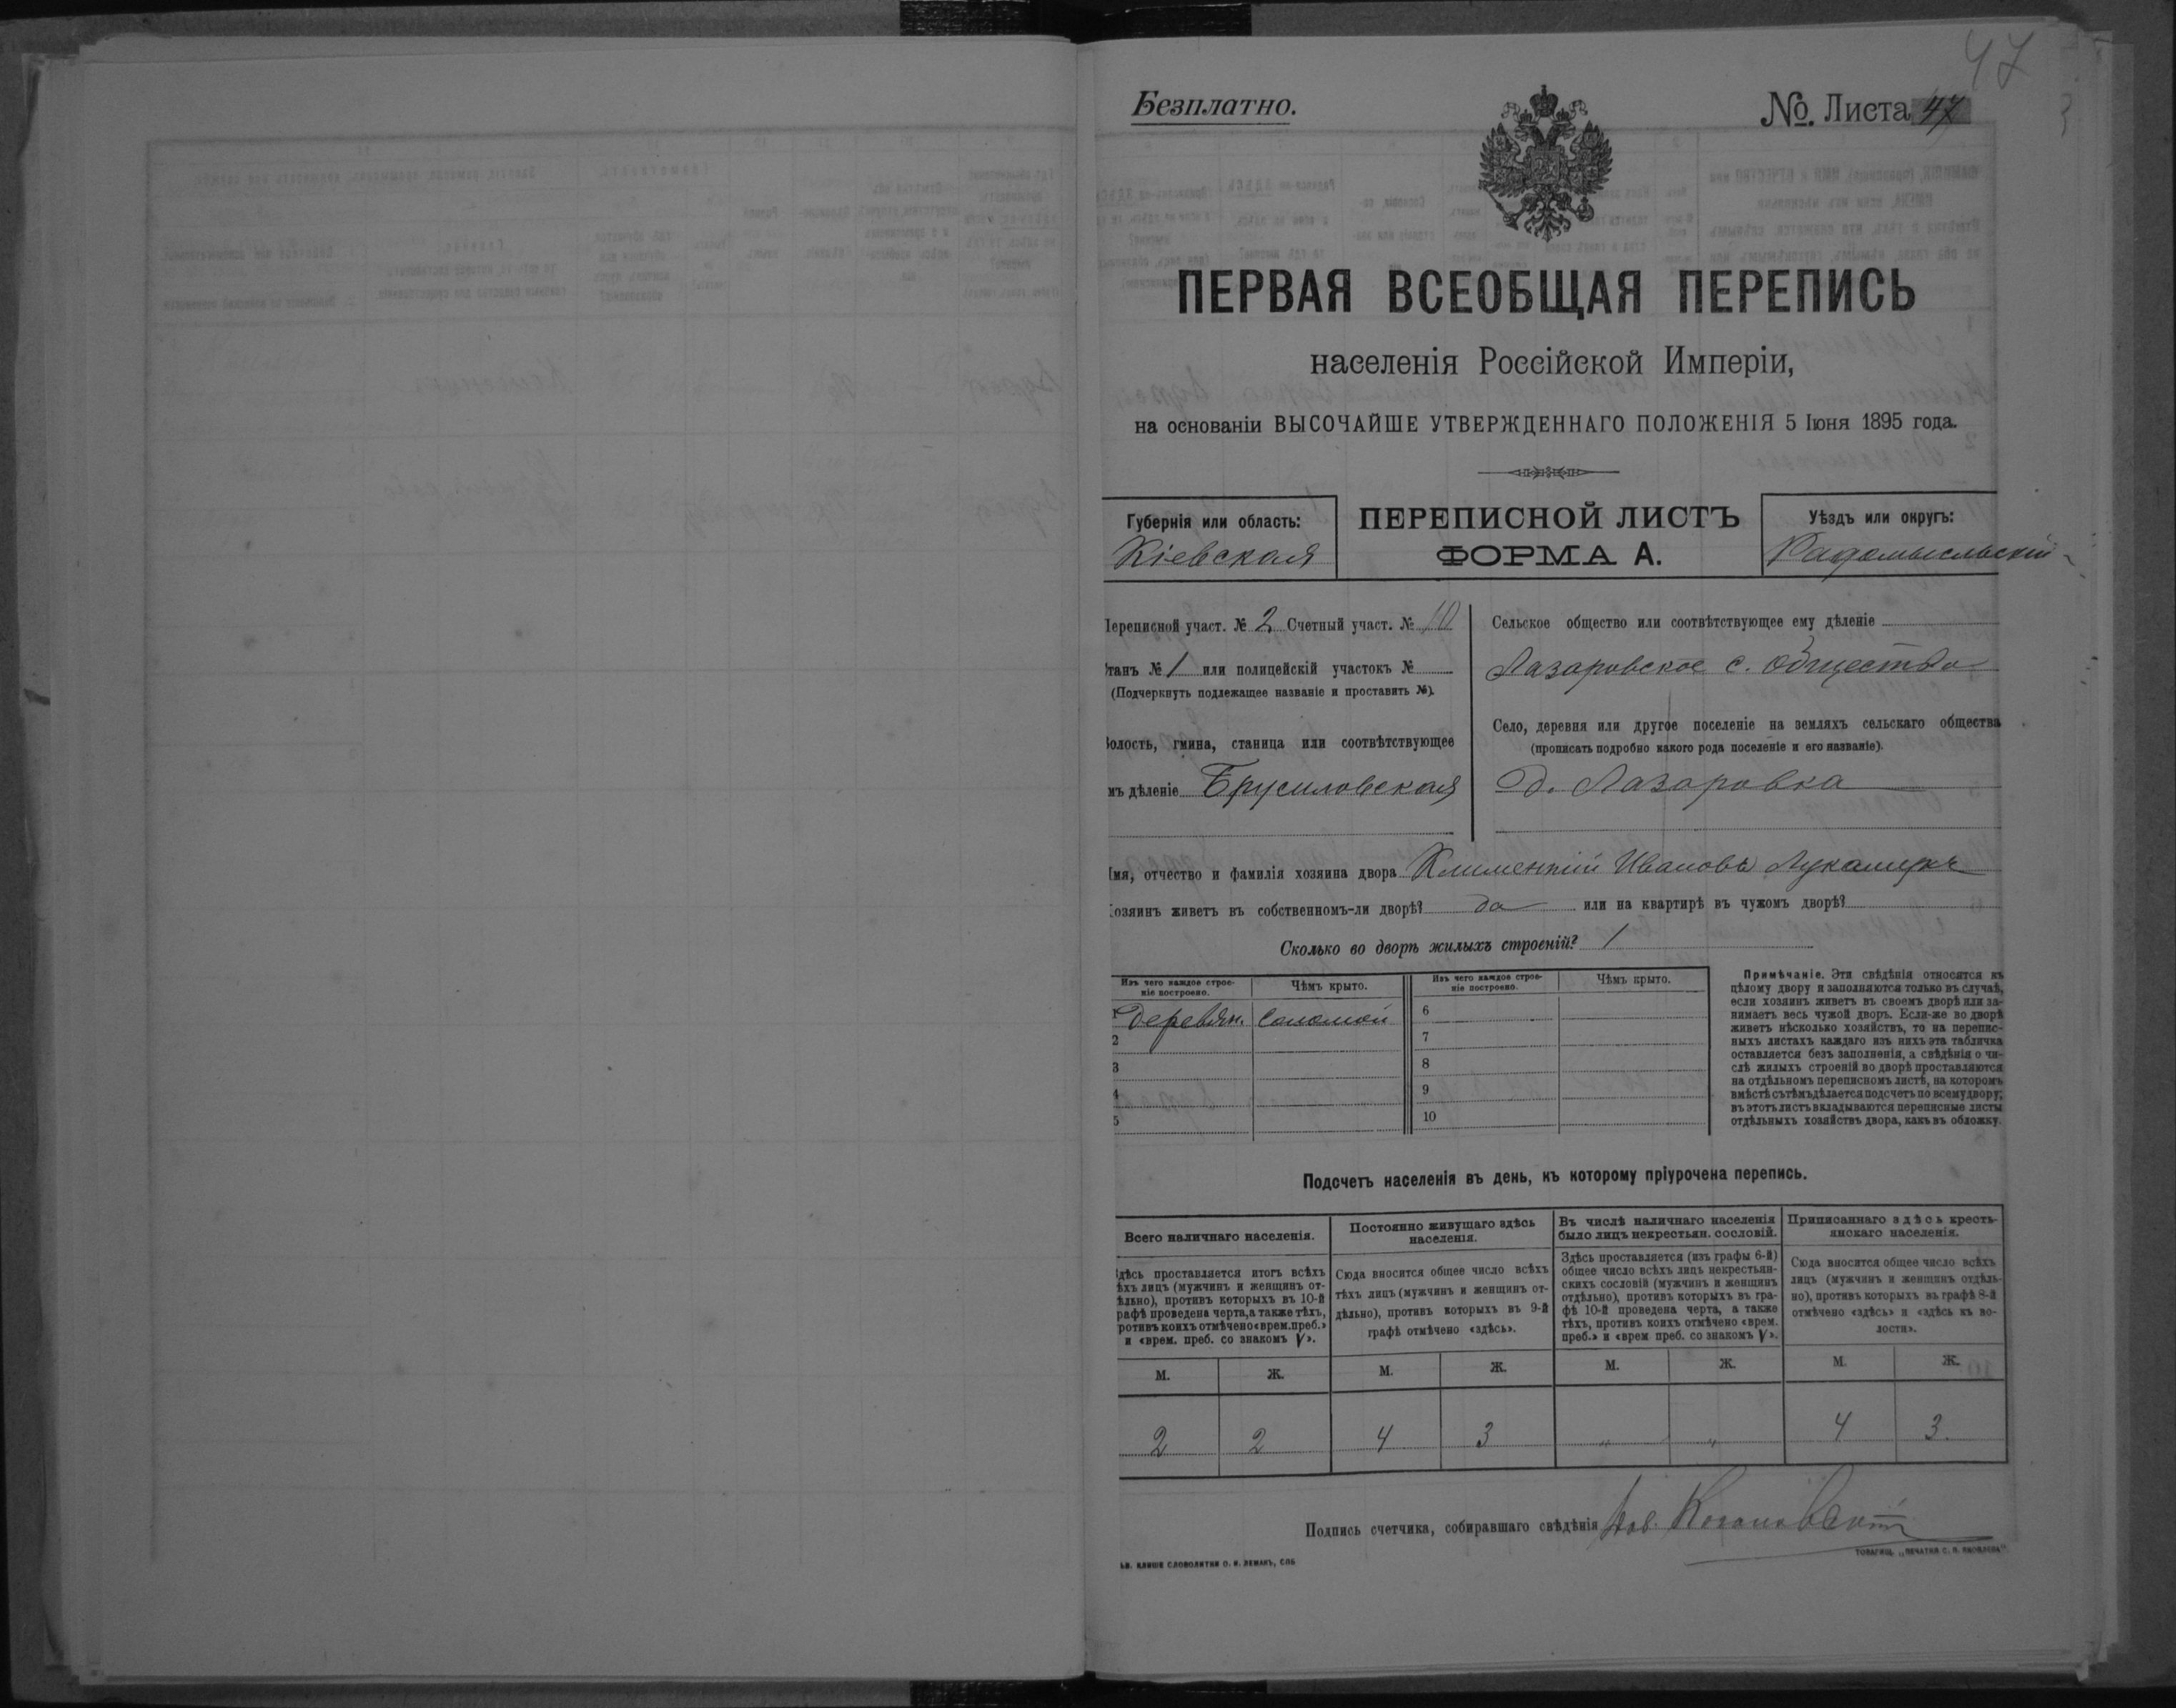 47
Безплатно.
№. Листа 47
ПЕРВАЯ ВСЕОБЩАЯ ПЕРЕПИСЬ
населенія Россійской Имперіи,
на основаніи ВЫСОЧАЙШЕ УТВЕРЖДЕННАГО ПОЛОЖЕНІЯ 5 Іюня 1895 года.
Губернія или область:
Кіевская
ПЕРЕПИСНОЙ ЛИСТЪ
ФОРМА А.
Уѣздъ или округъ:
Радомысльскій
Переписной участ. № 2 Счетный участ. № 10
Станъ № 1 или полицейскій участокъ №
(Подчеркнуть подлежащее названіе и проставить №).
Волость, гмина, станица или соотвѣтствующее
мъ дѣленіе Брусиловская
Сельское общество или соотвѣтствующее ему дѣленіе
Лазаровское с. общество
Село, деревня или другое поселеніе на земляхъ сельскаго общества
(прописать подробно какого рода поселеніе и его названіе).
д. Лазаровка
Имя, отчество и фамилія хозяина двора Климентій Ивановъ Лукашукъ
Хозяинъ живетъ въ собственномъ-ли дворѣ? да или на квартирѣ въ чужомъ дворѣ?
Сколько во дворѣ жилыхъ строеній? 1
Изъ чего каждое строеніе построено. Чѣмъ крыто. Изъ чего каждое строеніе построено. Чѣмъ крыто.
1 деревян. Соломой 6
2 7
3 8
4 9
5 10
Примѣчаніе. Эти свѣдѣнія относятся къ
цѣлому двору и заполняются только въ случаѣ,
если хозяинъ живетъ въ своемъ дворѣ или за-
нимаетъ весь чужой дворъ. Если-же во дворѣ
живетъ нѣсколько хозяйствъ, то на перепис-
ныхъ листахъ каждаго изъ нихъ эта табличка
оставляется безъ заполненія, а свѣдѣнія о чи-
слѣ жилыхъ строеній во дворѣ проставляются
на отдѣльномъ переписномъ листѣ, на которомъ
вмѣстѣ съ тѣмъ дѣлается подсчетъ по всему двору;
въ этотъ листъ вкладываются переписные листы
отдѣльныхъ хозяйствъ двора, какъ въ обложку.
Подсчетъ населенія въ день, къ которому пріурочена перепись.
Всего наличнаго населенія.
Здѣсь проставляется итогъ всѣхъ
ѣхъ лицъ (мужчинъ и женщинъ от-
ѣльно), противъ которыхъ въ 10-й
рафѣ проведена черта, а также тѣхъ,
ротивъ коихъ отмѣчено «врем. преб.»
и «врем. преб. со знакомъ V».
Постоянно живущаго здѣсь
населенія.
Сюда вносится общее число всѣхъ
тѣхъ лицъ (мужчинъ и женщинъ от-
дѣльно), противъ которыхъ въ 9-й
графѣ отмѣчено «здѣсь».
Въ числѣ наличнаго населенія
было лицъ некрестьян. сословій.
Здѣсь проставляется (изъ графы 6-й)
общее число всѣхъ лицъ некрестьян-
скихъ сословій (мужчинъ и женщинъ
отдѣльно), противъ которыхъ въ гра-
фѣ 10-й проведена черта, а также
тѣхъ, противъ коихъ отмѣчено «врем.
преб.» и «врем преб. со знакомъ V».
Приписаннаго здѣсь кресть-
янскаго населенія.
Сюда вносится общее число всѣхъ
лицъ (мужчинъ и женщинъ отдѣль-
но), противъ которыхъ въ графѣ 8-й
отмѣчено «здѣсь» и «здѣсь къ во-
лости».
М. Ж. М. Ж. М. Ж. М. Ж.
2 2 4 3 " " 4 3.
Подпись счетчика, собиравшаго свѣдѣнія
КЛИШЕ СЛОВОЛИТНИ О. И. ЛЕМАНЪ, СПБ
ТОВАРИЩ. „ПЕЧАТНЯ С. П. ЯКОВЛЕВА".